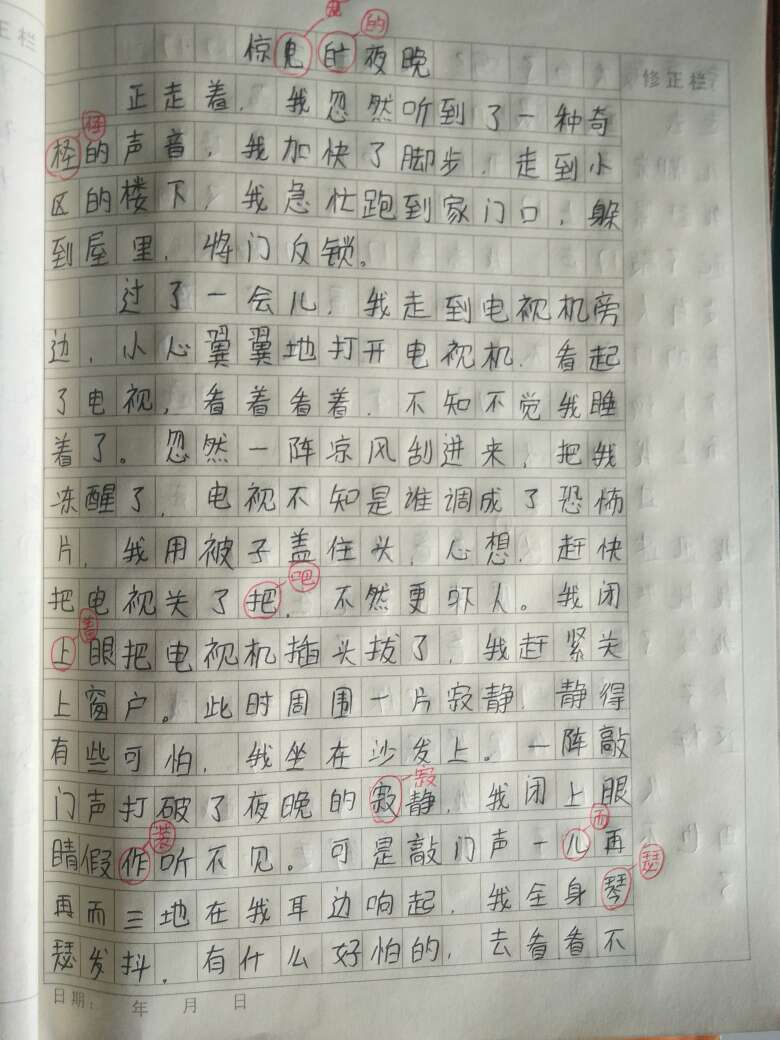 惊鬼的夜晚
的
修正栏
正栏
正走着，我忽然听到了一种奇
怪
怪的声音，我加快了脚步，走到小
区的楼下，我急忙跑到家门口，躲
到屋里，将门反锁。
过了一会儿，我走到电视机旁
边，小心翼翼地打开电视机，看起
了电视，看着看着，不知不觉我睡
着了。忽然一阵凉风刮进来，把我
冻醒了，电视不知是谁调成了恐怖
片，我用被子盖住头，心想，赶快
吧
把电视关了把，不然更吓人。我闭
着
上眼把电视机插头拔了，我赶紧关
上窗户。此时周围一片寂静，静得
有些可怕，我坐在沙发上。一阵敲
寂
门声打破了夜晚的寂静，我闭上眼
装
而
睛假作听不见。可是敲门声一儿再
瑟
再而三地在我耳边响起，我全身琴
瑟发抖，有什么好怕的，去看看不
日期： 年 月 日